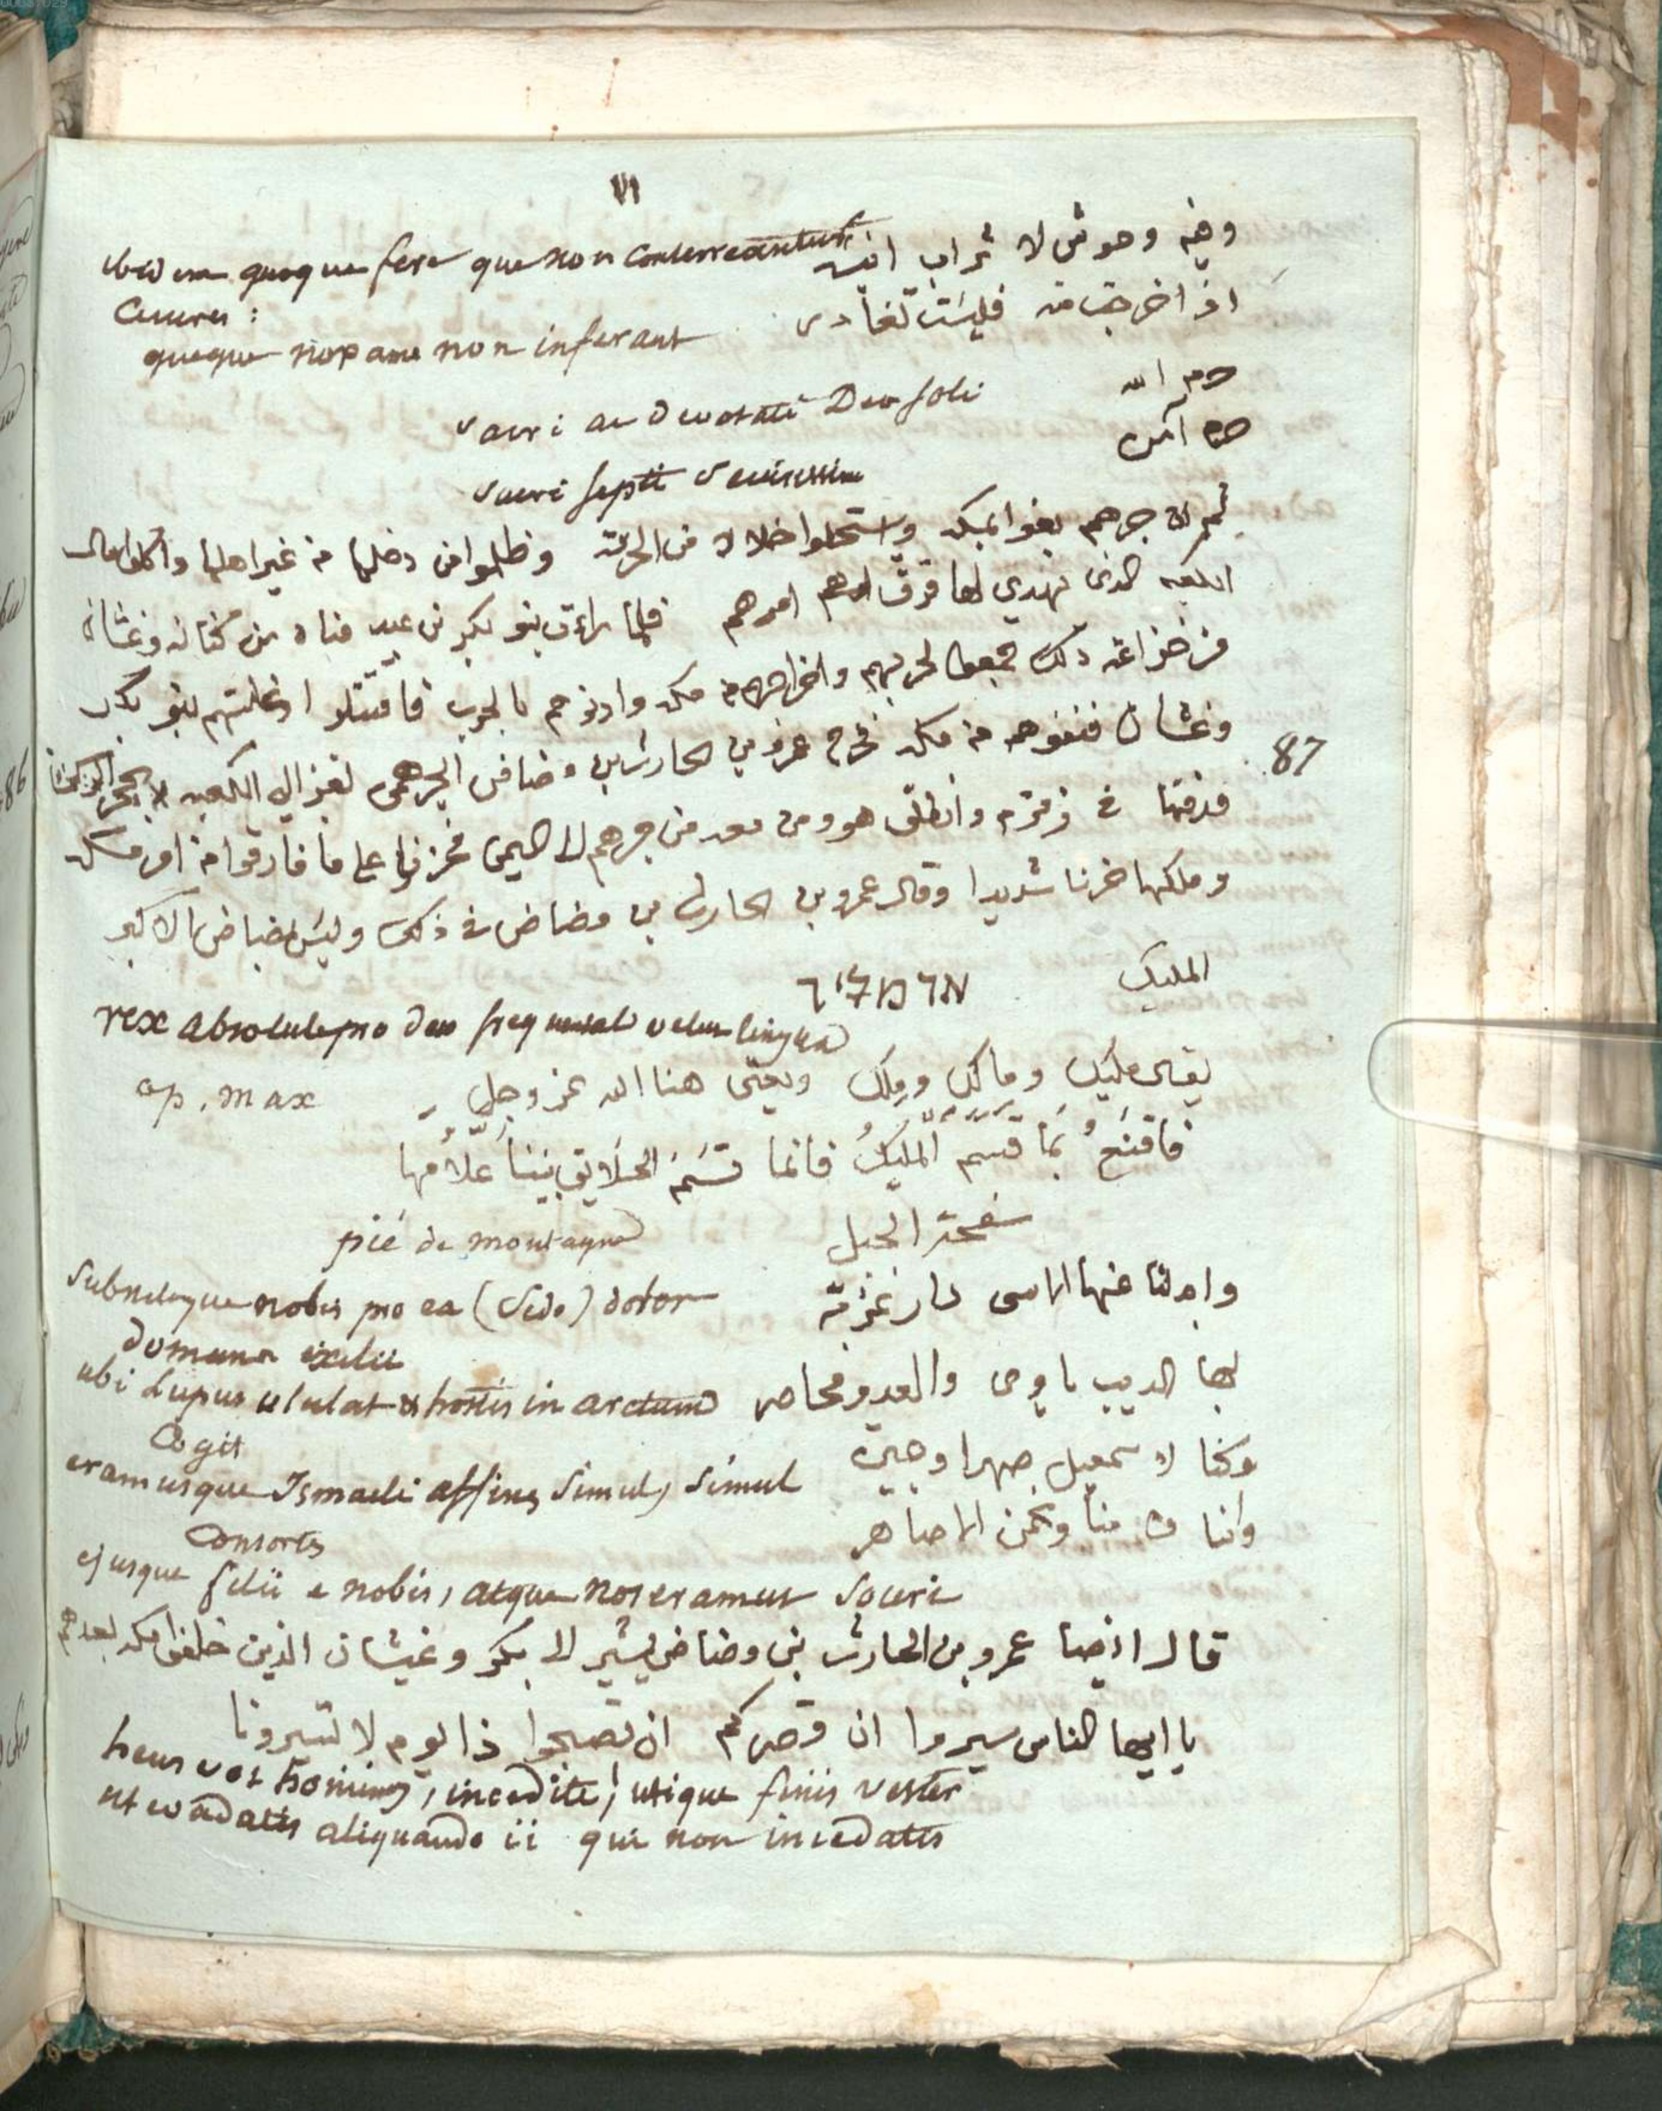 VI
وفيه وحوش لا تراب انيسه
ibidem quoque fere que non conterreantur
cicures:
اذ اخرجت منه فليست تغادى
queque non inferant
حرم الله
sacri ac devotati Deo soli
حرم آمن
sacri septi
ثم ان جرهم بغوا بمكه واستحلوا خلالا من الحرمة وظلموا من دخلها من غير اهلها واكلوا مال
الكعبه الذى يهدي لها فرق امرهم فلما راءت بنو بكر بن عبد مناه بن كنانه وغبشان
من خزاعه ذلك جمعوا لحربهم واخراجهم من مكه واذنوهم بالحرب فاقتتلوا فغلبتهم بنو بكر
وغبشان فنفوهم من مكه فخرج عمرو بن الحارث بن مضاض الجرهمى بغزالي الكعبه
87
فدفنها في زمزم وانطلق هو ومن معه من جرهم الى اليمن فحزنوا على ما فارقوا من امر مكه
وملكها حزنا شديدا وقال عمرو بن الحارث بن مضاض في ذلك وليس بمضاض الاكبر
المليك
rex absolute pro deo frequentat vetus lingua
يقال مليك ومالك وملك ويعنى هنا الله عز وجل
ap. max
فاقنع بما قسم المليك فانما قسم الخلايق بيننا علامها
سفحة الجبل
pié de montagne
وابدلنا عنها الاسى دار غربة
Subrelegue nobis pro ea (sede) dolor
domum exilii
بها الديب ياوى والعدو محاصر
ubi Lupus ululat & hostis in arctum
Cogit
وكنا لاسمعيل صهرا وجيرة
eramusque Ismaeli affines simul, simul
Consortes
وابناه منا ونحن الاصاهر
ejusque filii e nobis, atque nos eramus soceri
قال ايضا عمرو بن الحارث بن مضاض يشير الى بكر وغبشان الذين خلفوا مكه بعدهم
يا ايها الناس سيروا ان قصركم ان تصبحوا ذا يوم لا تسيرونا
heus vos homines, incedite, utique finis vester
ut evadatis aliquando ii qui non incedatis